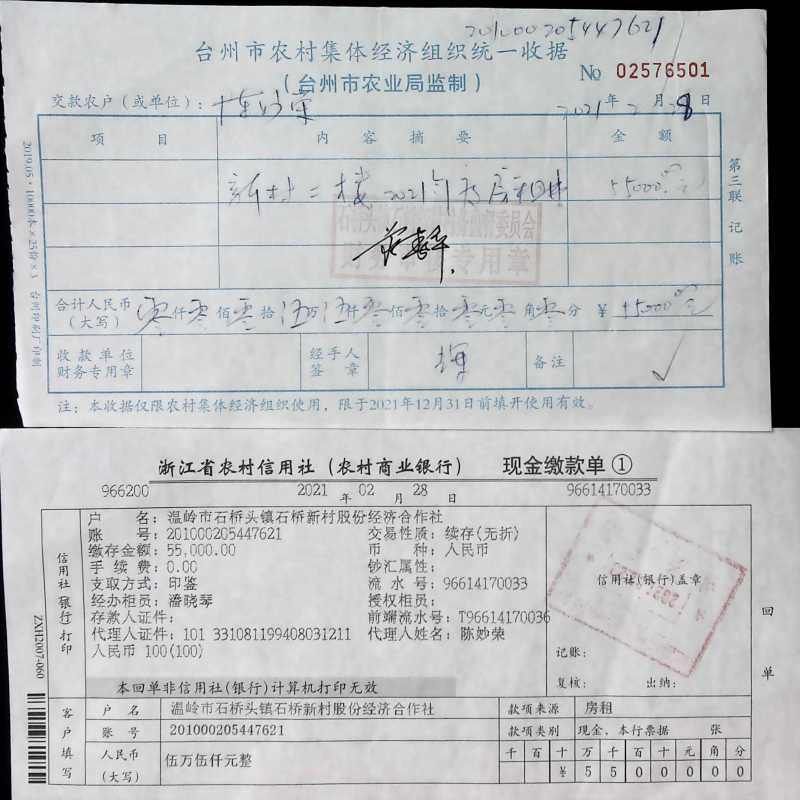 201000205447621
台州市农村集体经济组织统一收据
(台州市农业局监制)
No 02576501
交款农户（或单位）：陈妙荣
2021年2月28日
项 目 内 容 摘 要 金 额
新村二楼2021年 55000.00元
合计人民币（大写） 零仟零佰零拾伍万伍仟零佰零拾零元零角零分 ¥ 55000.00元
收款单位财务专用章 经手人签章 备注 ✓
注：本收据仅限农村集体经济组织使用，限于2021年12月31日前填开使用有效。
第三联 记账
2019.05·10000本×25份×3 台州印刷厂印制
浙江省农村信用社（农村商业银行） 现金缴款单①
966200 2021年02月28日 96614170033
户 名：温岭市石桥头镇石桥新村股份经济合作社
账 号：201000205447621 交易性质：续存(无折)
缴存金额：55,000.00 币 种：人民币
手 续 费：0.00 钞汇属性：
支取方式：印鉴 流 水 号：96614170033
经办柜员：潘晓琴 授权柜员：
存款人证件： 前端流水号：T96614170036
代理人证件：101 331081199408031211 代理人姓名：陈妙荣
人民币 100(100)
本回单非信用社(银行)计算机打印无效
信用社(银行)打印
信用社(银行)盖章
记账：
复核： 出纳：
回单
ZXH2007-060
客户填写
户 名 温岭市石桥头镇石桥新村股份经济合作社 款项来源 房租
账 号 201000205447621 款项类别 现金、本行票据 张
人民币（大写） 伍万伍仟元整 千百十万千百十元角分
¥5500000